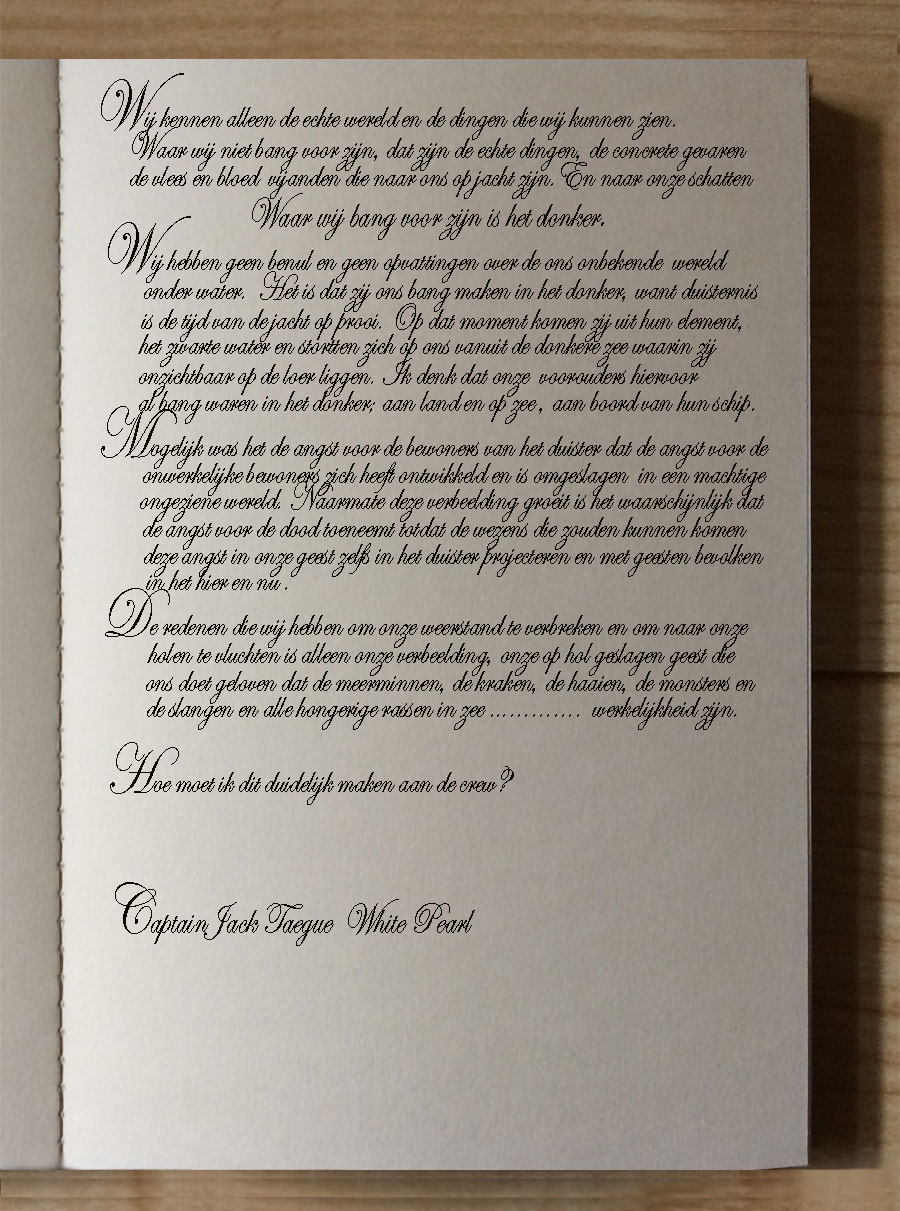 Wij kennen alleen de echte wereld en de dingen die wij kunnen zien.
Waar wij niet bang voor zijn, dat zijn de echte dingen, de concrete gevaren
de vlees en bloed vijanden die naar ons op jacht zijn. En naar onze schatten
Waar wij bang voor zijn is het donker.
Wij hebben geen benul en geen opvattingen over de ons onbekende wereld
onder water. Het is dat zij ons bang maken in het donker, want duisternis
is de tijd van de jacht op prooi. Op dat moment komen zij uit hun element,
het zwarte water en stortten zich op ons vanuit de donkere zee waarin zij
onzichtbaar op de loer liggen. Ik denk dat onze voorouders hiervoor
al bang waren in het donker; aan land en op zee, aan boord van hun schip.
Mogelijk was het de angst voor de bewoners van het duister dat de angst voor de
onwerkelijke bewoners zich heeft ontwikkeld en is omgeslagen in een machtige
ongeziene wereld. Naarmate deze verbeelding groeit is het waarschijnlijk dat
de angst voor de dood toeneemt totdat de wezens die zouden kunnen komen
deze angst in onze geest zelfs in het duister projecteren en met geesten bevolken
in het hier en nu.
De redenen die wij hebben om onze weerstand te verbreken en om naar onze
holen te vluchten is alleen onze verbeelding, onze op hol geslagen geest die
ons doet geloven dat de meerminnen, de kraken, de haaien, de monsters en
de slangen en alle hongerige rassen in zee ............. werkelijkheid zijn.
Hoe moet ik dit duidelijk maken aan de crew?
Captain Jack Taegue White Pearl